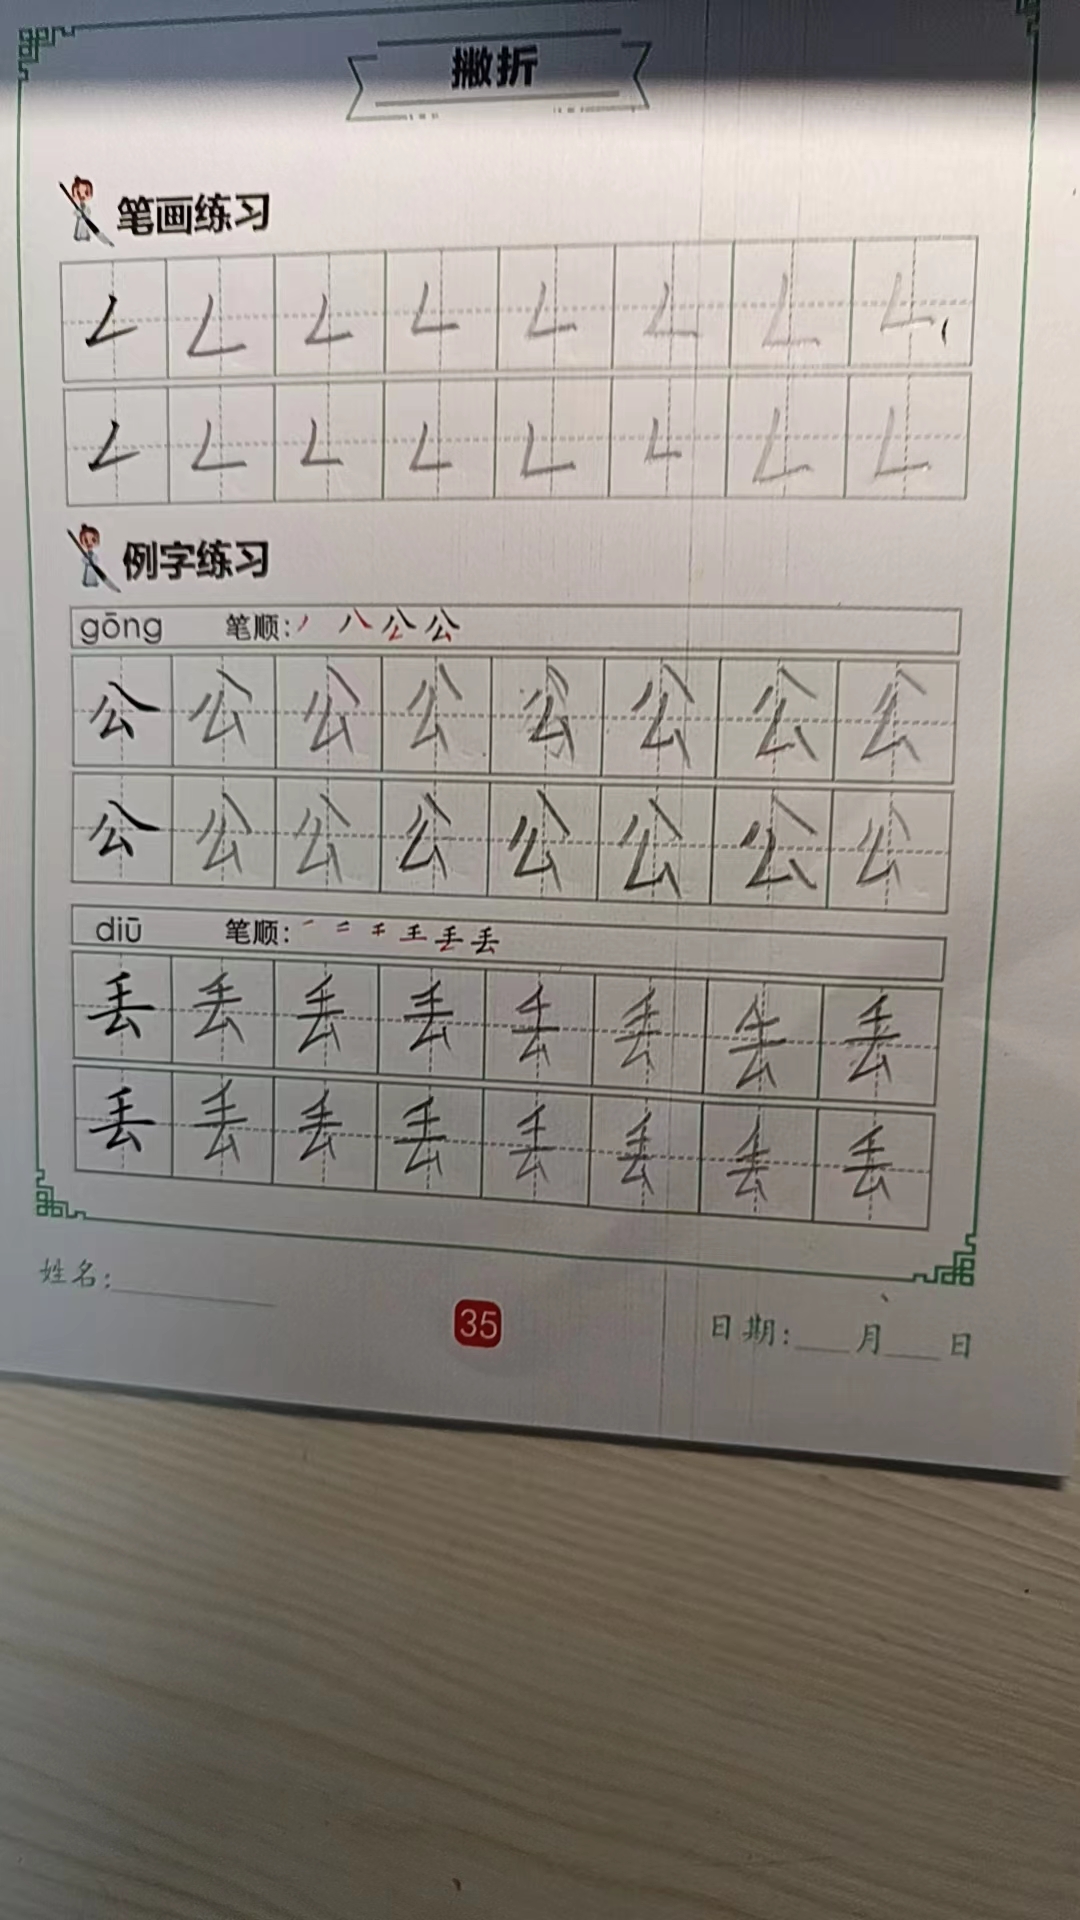 撇折
笔画练习
例字练习
gōng 笔顺: 丿 八 公 公
公 公 公 公 公 公 公 公
公 公 公 公 公 公 公 公
diū 笔顺: 一 二 干 王 丢 丢
丢 丢 丢 丢 丢 丢 丢 丢
丢 丢 丢 丢 丢 丢 丢 丢
姓名:
35
日期: 月 日